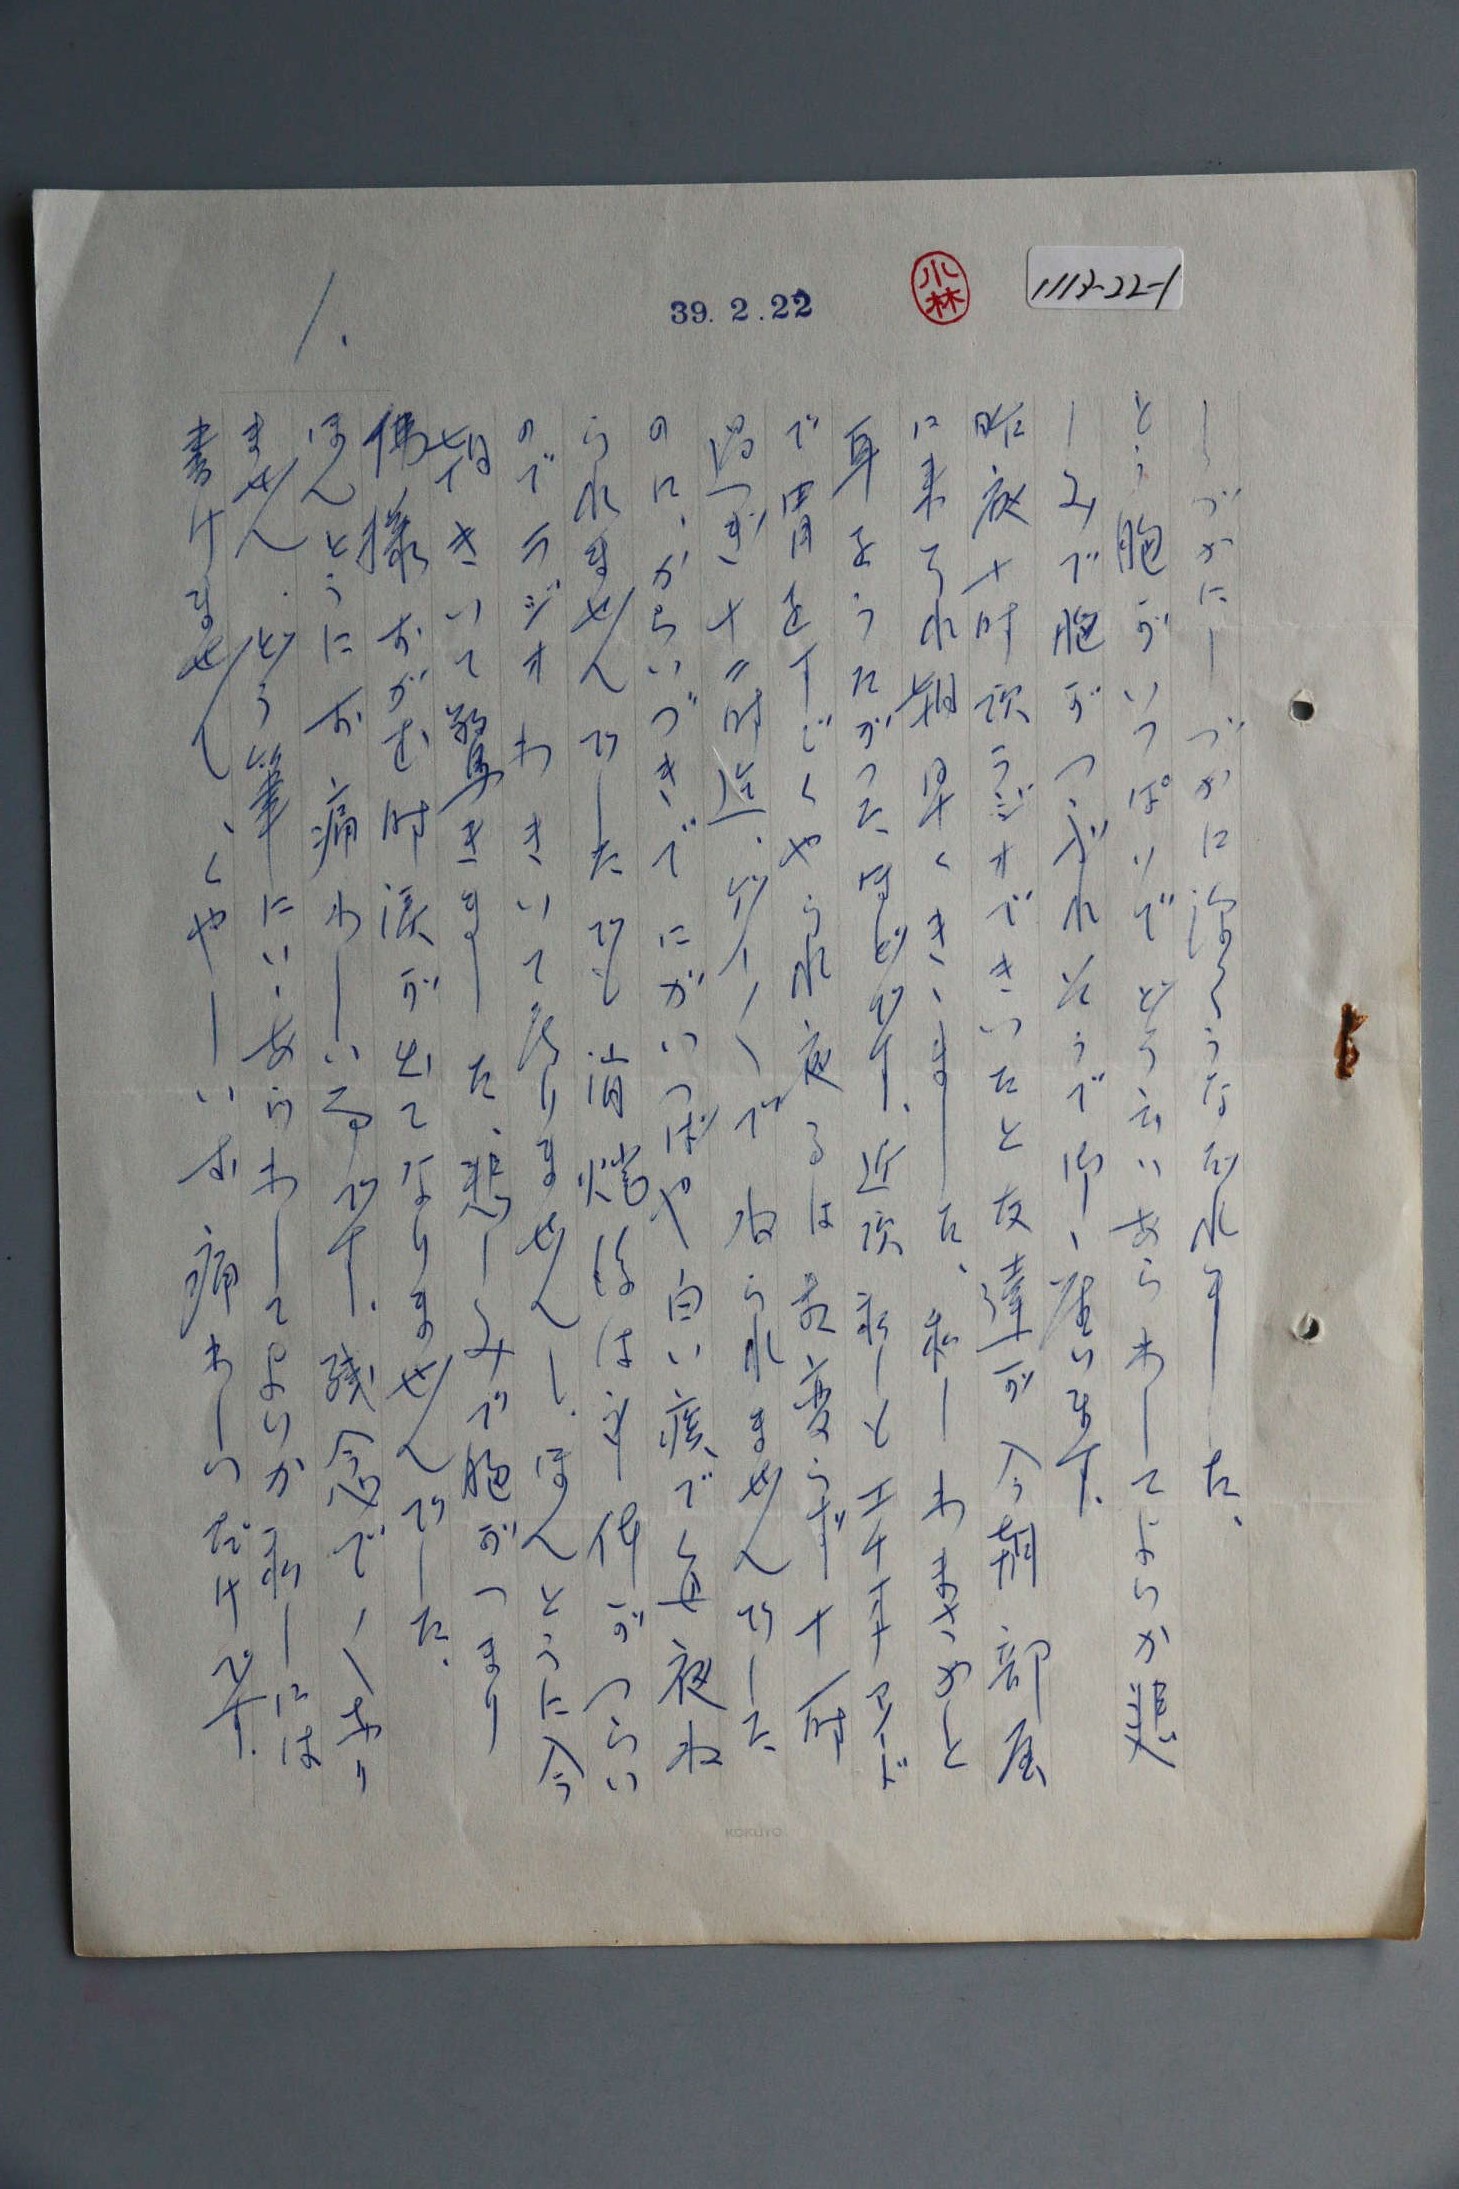 1113-22-1
小林
39.2.22
1.
しづかにしづかに深くうなだれました、
とう胸がいっぱいでどう云いあらわしてよいか悲
しみで胸がつぶれそうで御座います。
昨夜十時頃ラジオできいたと友達が今朝部屋
に来られ朝早くきゝました、私しわまさかと
耳をうたがったほどです、近頃私しとエチオアード
で胃をすごくやられ夜るは相変らず十一時
過ぎ十二時近、ゲーゲーで ねられませんでした
のに、からいづきで にがいつばや白い痰で毎夜ね
られませんでしたでも 消燈後は 体がつらい
のでラジオわきいて居りませんし、ほんとうに今
朝きいて驚きました、悲しみで胸がつまり
佛様おがむ時涙が出てなりませんでした、
ほんとうにお痛わしい事です、残念で〱あり
ません、どう筆にいゝあらわしてよいか私しには
書けません、くやしいお痛わしいだけです、
KOKUYO